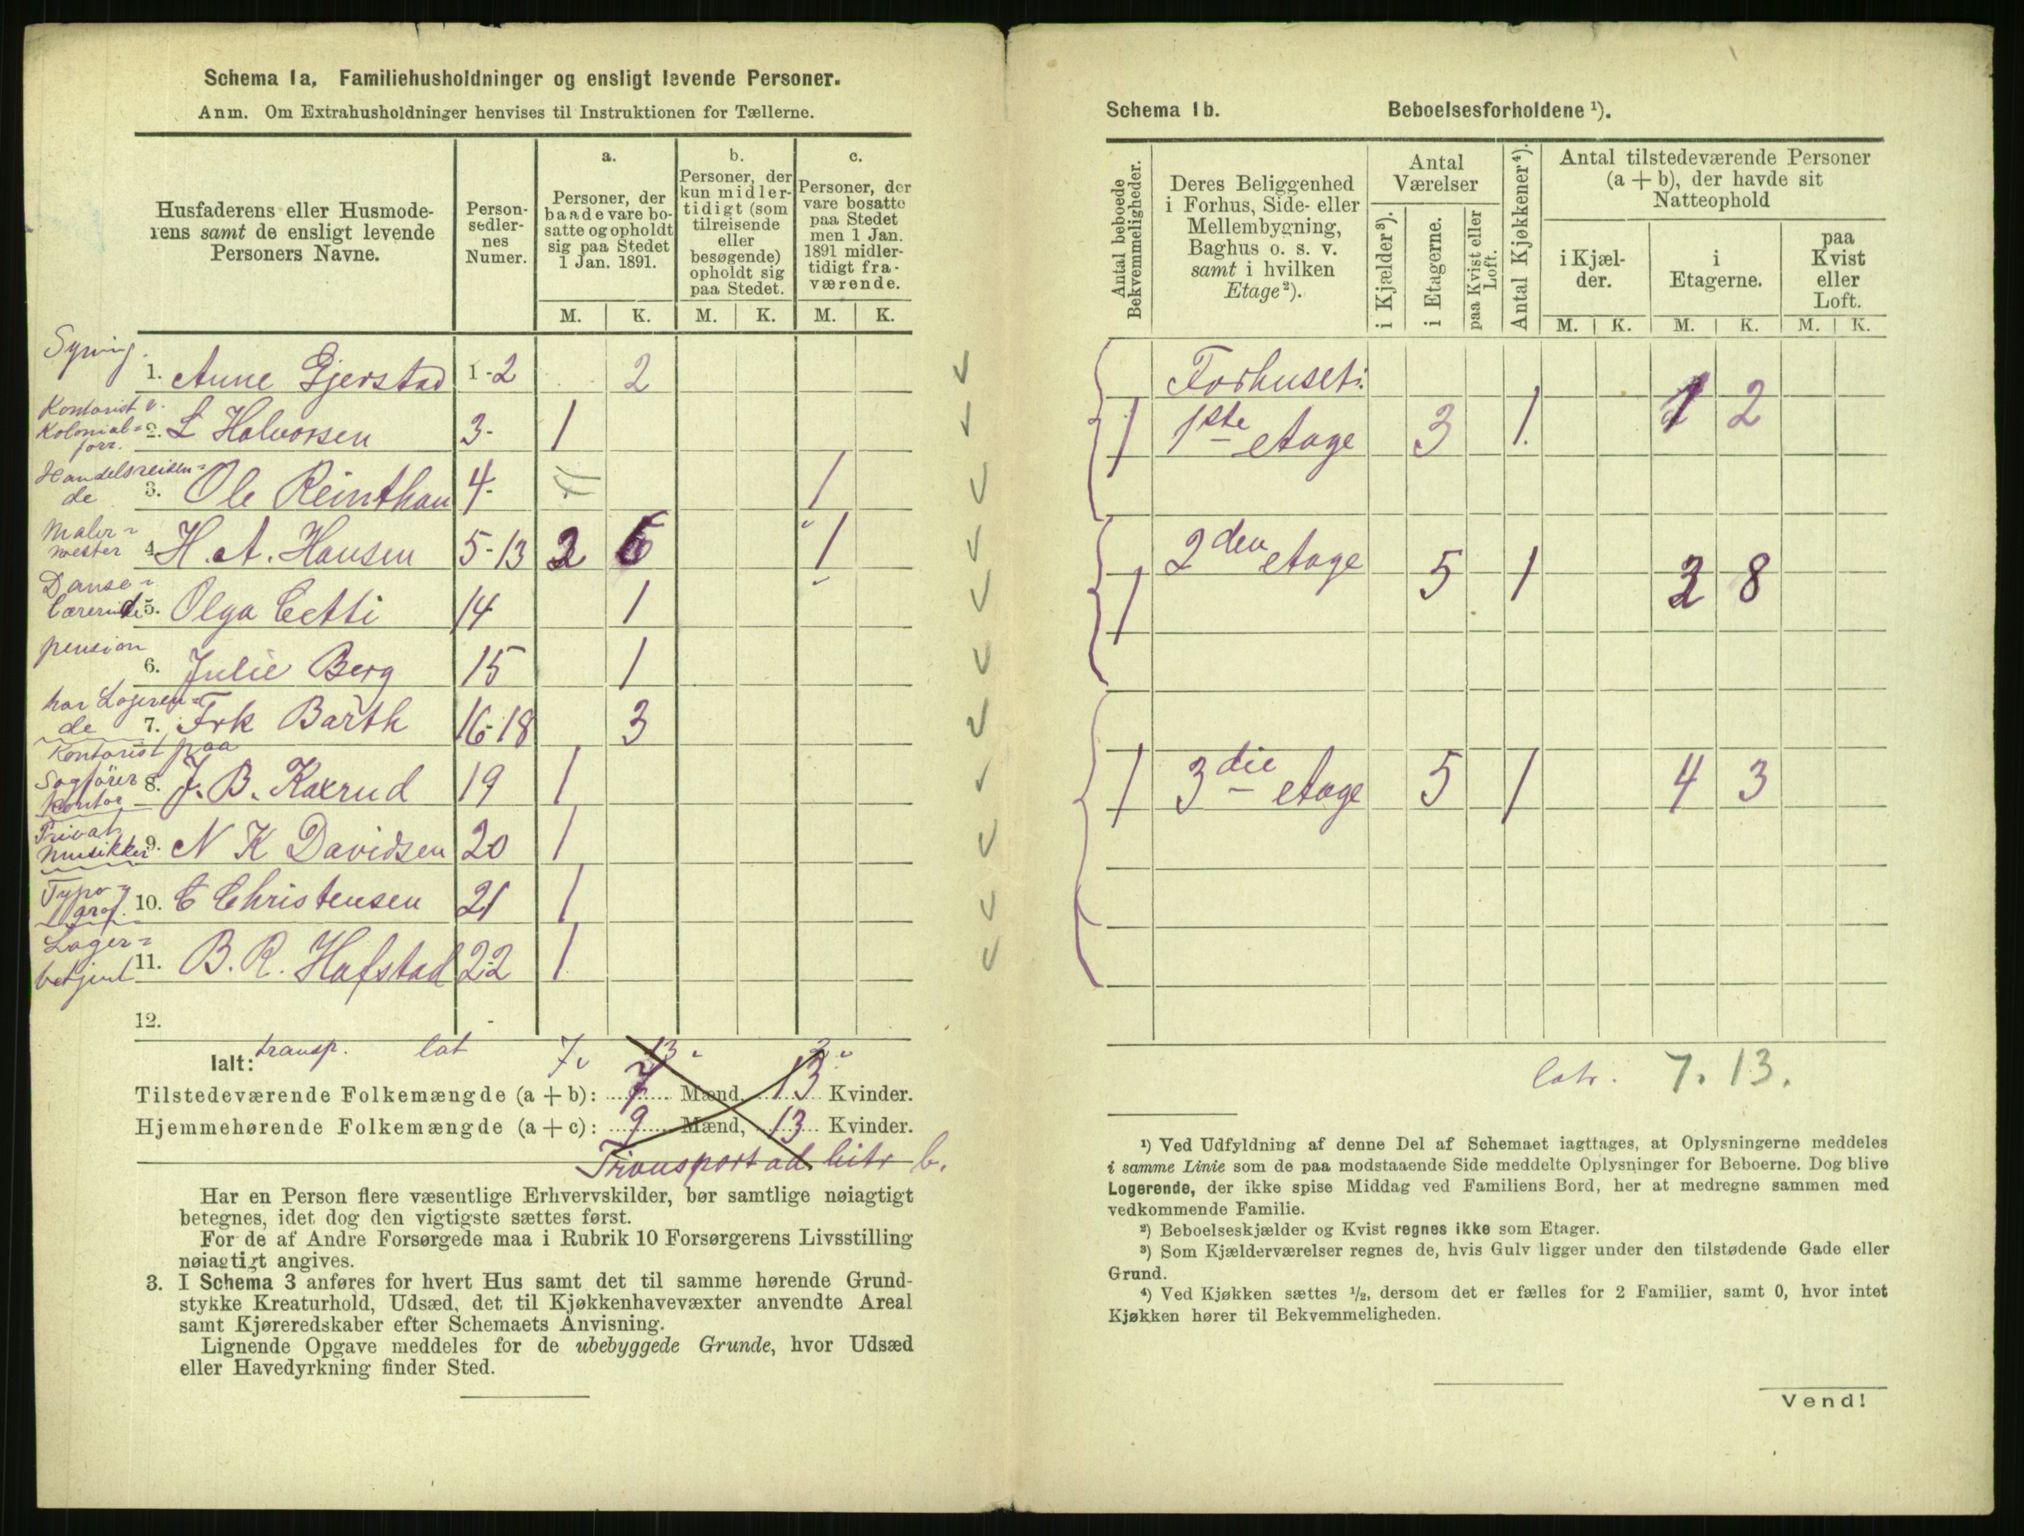 Schema 1a, Familiehusholdninger og ensligt levende Personer.
Anm. Om Extrahusholdninger henvises til Instruktionen for Tællerne.
Husfaderens eller Husmode-
rens samt de ensligt levende
Personers Navne.
Person-
sedler-
nes
Numer.
a.
Personer, der
baade vare bo-
satte og opholdt
sig paa Stedet
1 Jan. 1891.
b.
Personer, der
kun midler-
tidigt (som
tilreisende
eller
besøgende)
opholdt sig
paa Stedet.
c.
Personer, der
vare bosatte
paa Stedet
men 1 Jan.
1891 midler-
tidigt fra-
værende.
M. K. M. K. M. K.
Syning.
1. Anne Gjerstad 1-2 2
Kontorist v.
Kolonial=
forr.
2. L Halvorsen 3- 1
Handelsreisen=
de
3. Ole Reinthan 4- 1
Maler=
mester
4. H. A. Hansen 5-13 2 6 " 1
Danse=
lærerinde
5. Olga Cetti 14 1 "
pension
6. Julie Berg 15 1
har Logeren=
de
7. Frk Barth 16-18 3
Kontorist paa
Sagfører
kontor
8. J. B. Kaxrud 19 1
Privat
musikker
9. N K Davidsen 20 1
Typo=
graf.
10. C Christensen 21 1
Lager=
betjent
11. B. R. Hafstad 22 1
12.
Ialt: transp. lat 7 " 13 " 2 "
Tilstedeværende Folkemængde (a + b): 7 Mænd, 13 Kvinder.
Hjemmehørende Folkemængde (a + c): 9 Mænd, 13 Kvinder.
Transport ad litr b.
Har en Person flere væsentlige Erhvervskilder, bør samtlige nøiagtigt
betegnes, idet dog den vigtigste sættes først.
For de af Andre Forsørgede maa i Rubrik 10 Forsørgerens Livsstilling
nøiagtigt angives.
3. I Schema 3 anføres for hvert Hus samt det til samme hørende Grund-
stykke Kreaturhold, Udsæd, det til Kjøkkenhavevæxter anvendte Areal
samt Kjøreredskaber efter Schemaets Anvisning.
Lignende Opgave meddeles for de ubebyggede Grunde, hvor Udsæd
eller Havedyrkning finder Sted.
Schema 1b. Beboelsesforholdene ¹).
Antal beboede
Bekvemmeligheder.
Deres Beliggenhed
i Forhus, Side- eller
Mellembygning,
Baghus o. s. v.
samt i hvilken
Etage²).
Antal
Værelser
i Kjælder³).
i Etagerne.
paa Kvist eller
Loft.
Antal Kjøkkener⁴).
Antal tilstedeværende Personer
(a + b), der havde sit
Natteophold
i Kjæl-
der.
i
Etagerne.
paa
Kvist
eller
Loft.
M. K. M. K. M. K.
Forhuset:
1 1ste etage 3 1 1 2
1 2den etage 5 1 2 8
1 3die etage 5 1 4 3
latr. 7. 13.
¹) Ved Udfyldning af denne Del af Schemaet iagttages, at Oplysningerne meddeles
i samme Linie som de paa modstaaende Side meddelte Oplysninger for Beboerne. Dog blive
Logerende, der ikke spise Middag ved Familiens Bord, her at medregne sammen med
vedkommende Familie.
²) Beboelseskjælder og Kvist regnes ikke som Etager.
³) Som Kjælderværelser regnes de, hvis Gulv ligger under den tilstødende Gade eller
Grund.
⁴) Ved Kjøkken sættes ½, dersom det er fælles for 2 Familier, samt 0, hvor intet
Kjøkken hører til Bekvemmeligheden.
Vend!